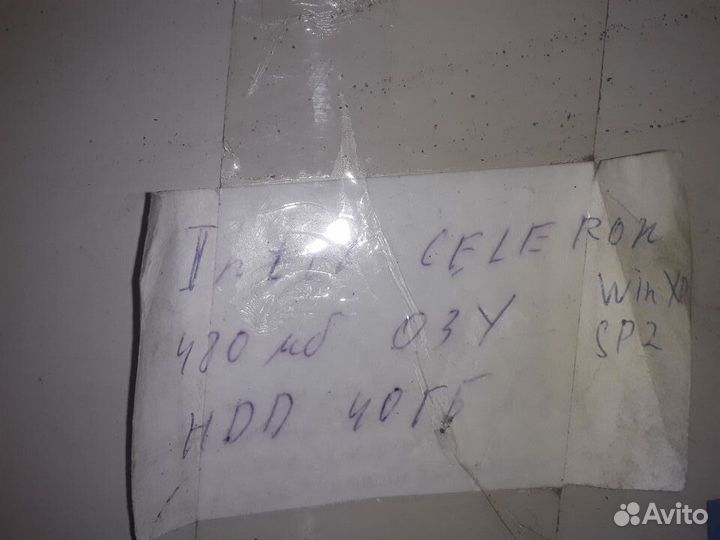 Intel CELERON
Win XP
480 мб ОЗУ
SP2
HDD 40ГБ
Avito